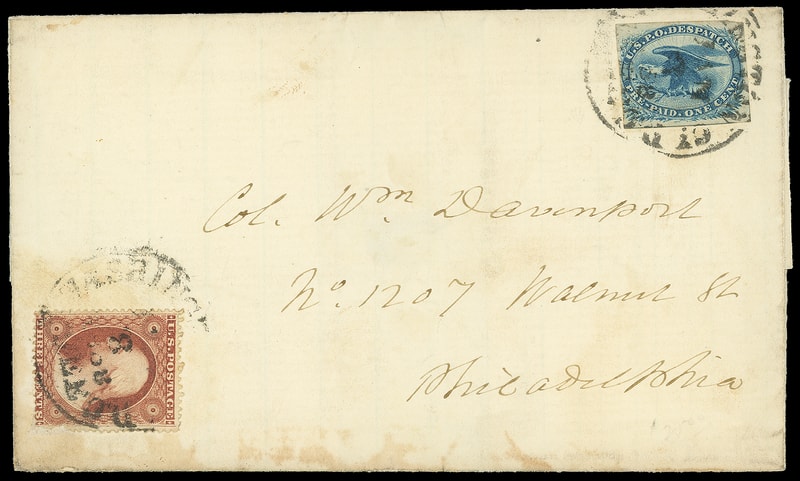 U.S.P.O. DESPATCH
PRE-PAID. ONE CENT
Col. Wm Davenport
No. 1207 Walnut St
Philadelphia
U.S. POSTAGE
THREE CENTS